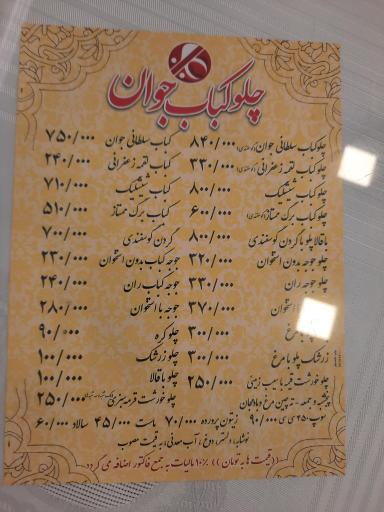 چلوکباب جوان
چلوکباب سلطانی جوان (گوسفندی) ۸۴۰/۰۰۰
چلوکباب لقمه زعفرانی (گوسفندی) ۳۳۰/۰۰۰
چلوکباب شیشلیک ۸۰۰/۰۰۰
چلوکباب برگ ممتاز (گوسفندی) ۶۰۰/۰۰۰
باقالا پلو با گردن گوسفندی ۸۰۰/۰۰۰
چلوجوجه بدون استخوان ۳۲۰/۰۰۰
چلوجوجه ران ۳۳۰/۰۰۰
استخوان ۳۷۰/۰۰۰
مرغ ۳۰۰/۰۰۰
زرشک پلو با مرغ ۳۰۰/۰۰۰
چلو خورشت قیمه با سیب زمینی ۲۵۰/۰۰۰
پنجشنبه و جمعه - ته چین مرغ و بادمجان
کباب سلطانی جوان ۷۵۰/۰۰۰
کباب لقمه زعفرانی ۲۴۰/۰۰۰
کباب شیشلیک ۷۱۰/۰۰۰
کباب برگ ممتاز ۵۱۰/۰۰۰
گردن گوسفندی ۷۰۰/۰۰۰
جوجه کباب بدون استخوان ۲۳۰/۰۰۰
جوجه کباب ران ۲۴۰/۰۰۰
جوجه با استخوان ۲۸۰/۰۰۰
چلو کره ۹۰/۰۰۰
چلو زرشک ۱۰۰/۰۰۰
چلو باقالا ۱۰۰/۰۰۰
چلو خورشت قرمه سبزی ۲۵۰/۰۰۰
سوپ ۲۵۰ سی سی ۹۰/۰۰۰ زیتون پرورده ۷۰/۰۰۰ ماست ۴۵/۰۰۰ سالاد ۶۰/۰۰۰
نوشابه ، دلستر، دوغ ، آب معدنی، به قیمت مصوب
((قیمت ها به تومان )) ۱۰٪ مالیات به جمع فاکتور اضافه می گردد